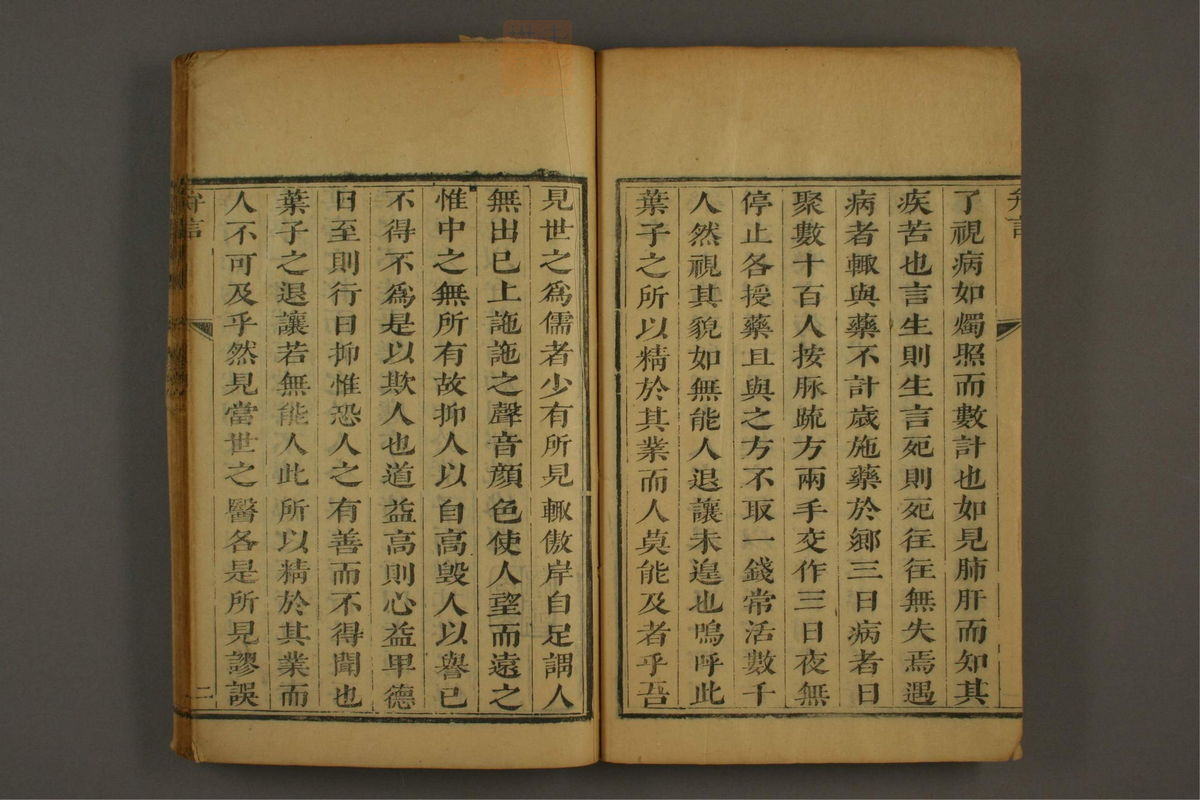 弁言
了視病如燭照而數計也如見肺肝而知其
疾苦也言生則生言死則死往往無失焉遇
病者輒與藥不計歲施藥於鄉三日病者日
聚數十百人按脉疏方兩手交作三日夜無
停止各授藥且與之方不取一錢常活數千
人然視其貌如無能人退讓未遑也嗚呼此
葉子之所以精於其業而人莫能及者乎吾
見世之爲儒者少有所見輒傲岸自足謂人
無出已上訑訑之聲音顔色使人望而遠之
惟中之無所有故抑人以自高毀人以譽已
不得不爲是以欺人也道益高則心益甲德
日至則行日抑惟恐人之有善而不得聞也
葉子之退讓若無能人此所以精於其業而
人不可及乎然見當世之醫各是所見謬誤
弁言
二